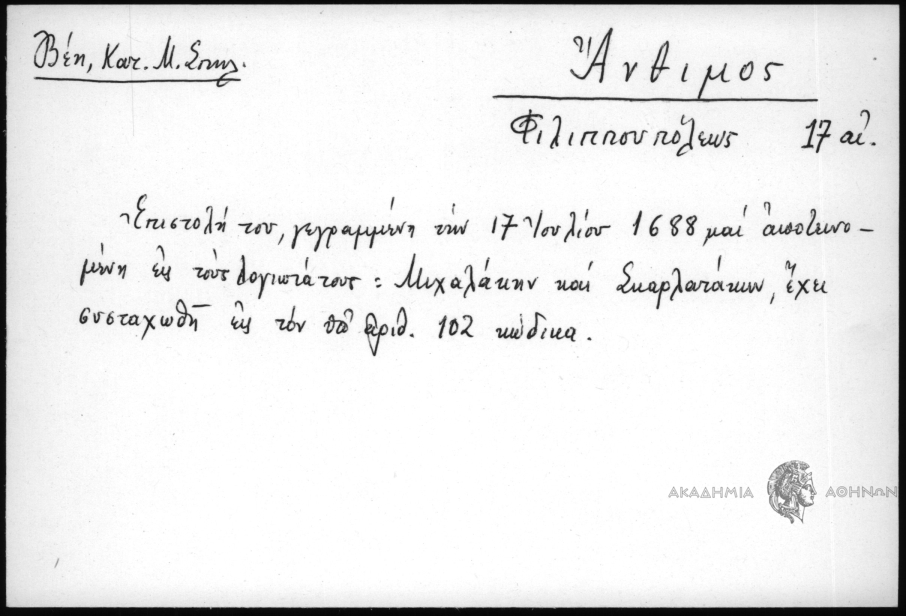 Βέη, Κατ. Μ. Σπηλ.
Ἄνθιμος
Φιλιππουπόλεως 17 αἰ.
Ἐπιστολή του, γεγραμμένη τήν 17 Ἰουλίου 1688 καί ἀποτεινο-
μένη εἰς τούς λογιωτάτους: Μιχαλάκην καί Σκαρλατάκην, ἔχει
συσταχωθῆ εἰς τόν ὑπ' ἀριθ. 102 κώδικα.
ΑΚΑΔΗΜΙΑ ΑΘΗΝΩΝ